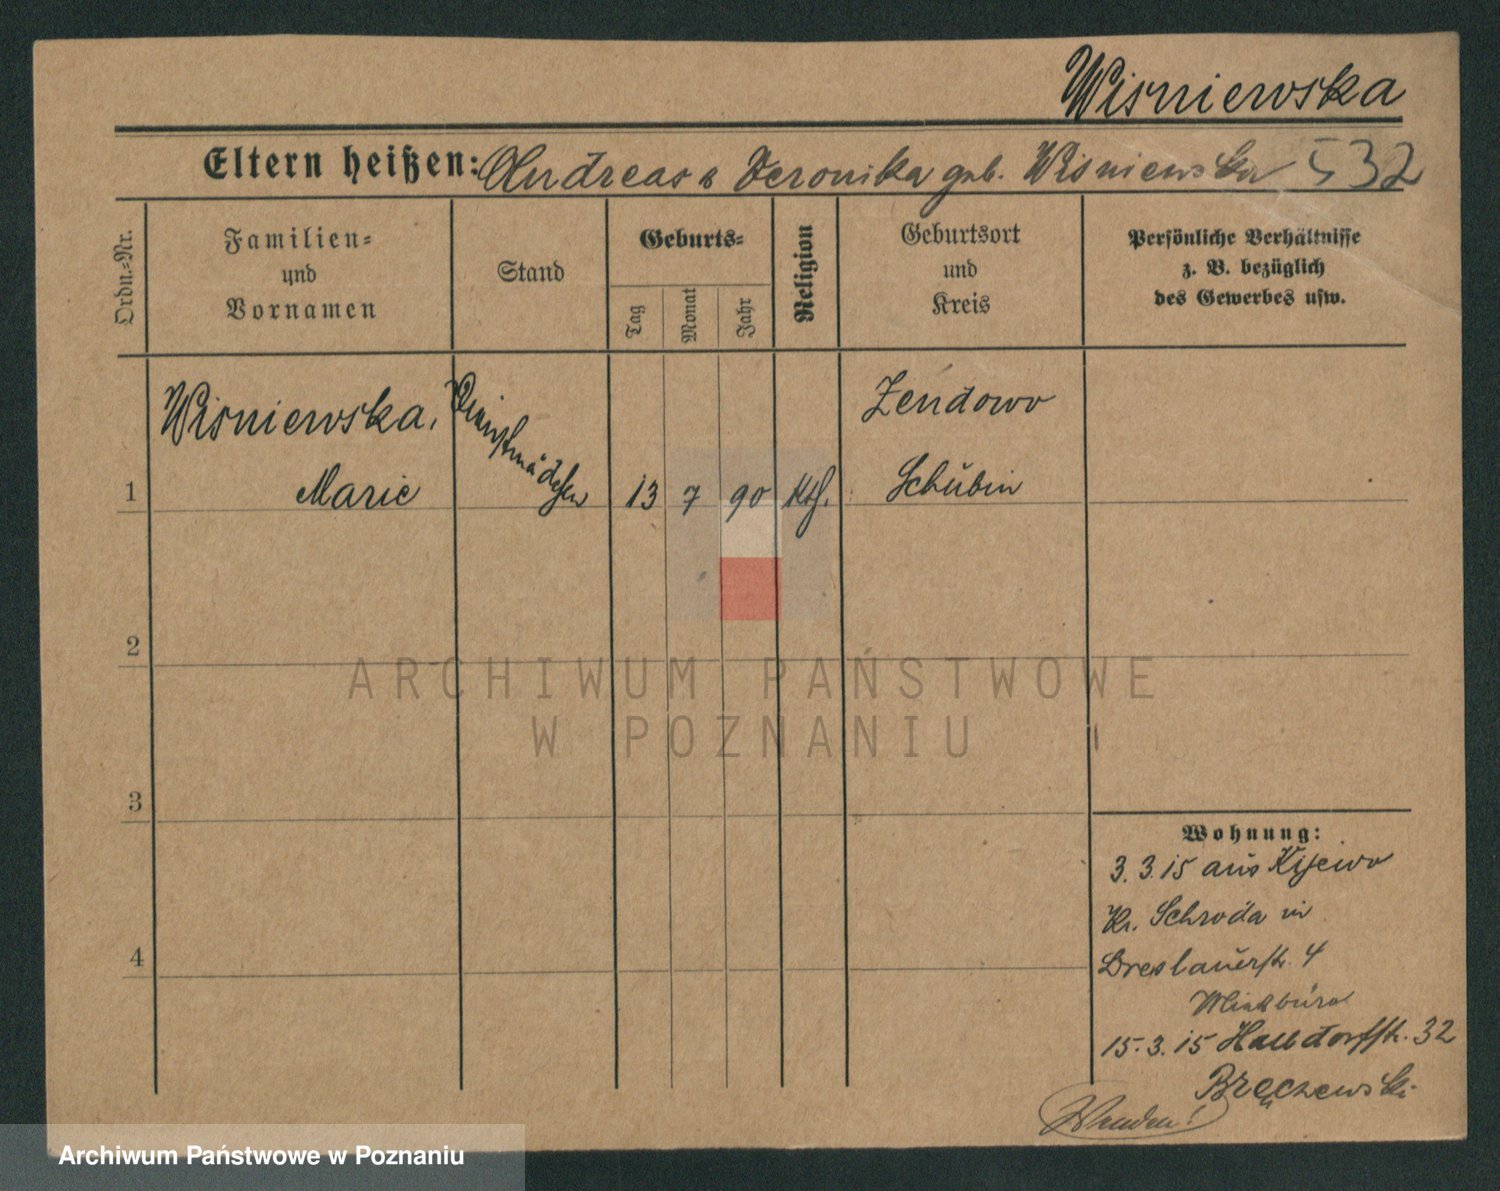 Wisniewska
Eltern heißen: Andreas & Veronika geb. Wisniewska 532
Ordn.-Nr.
Familien-
und
Vornamen
Stand
Geburts-
Tag
Monat
Jahr
Religion
Geburtsort
und
Kreis
Persönliche Verhältnisse
z. B. bezüglich
des Gewerbes usw.
Wisniewska,
Dienstmädchen
Zendowo
1 Marie 13 7 90 kth. Schubin
2
3
4
Wohnung:
3.3.15 aus Kijewo
Kr. Schroda in
Breslauerstr. 4
15.3.15 Halbdorfstr. 32
Bręczewski
Wenden!
ARCHIWUM PAŃSTWOWE
W POZNANIU
Archiwum Państwowe w Poznaniu